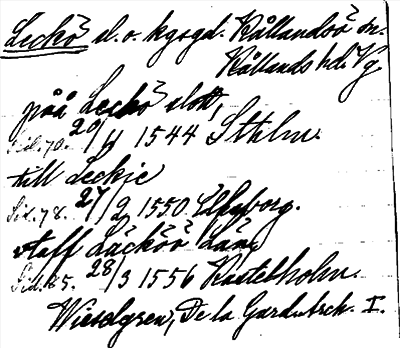 Leckö sl. o. kgsgd. Kållandsö sn.
Kållands hd. Vg
påå Leckö slott,
Sid. 70. 20/4 1544 Sthlm.
till Leckie
Sid. 78. 27/2 1550 Elfsborg.
aff Läcköö Län
Sid. 85. 28/3 1556 Kastelholm.
Wieselgren, De la Gardie I.